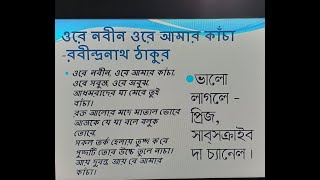 ওরে নবীন ওরে আমার কাঁচা
-রবীন্দ্রনাথ ঠাকুর
ওরে নবীন, ওরে আমার কাঁচা,
ওরে সবুজ, ওরে অবুঝ,
আধমরাদের ঘা মেরে তুই
বাঁচা।
রক্ত আলোর মদে মাতাল ভোরে
আজকে যে যা বলে বলুক
তোরে,
সকল তর্ক হেলায় তুচ্ছ করে
পুচ্ছটি তোর উচ্চে তুলে নাচা।
আয় দুরন্ত, আয় রে আমার
কাঁচা।
ভালো
লাগলে -
প্লিজ,
সাবসক্রাইব
দা চ্যানেল।